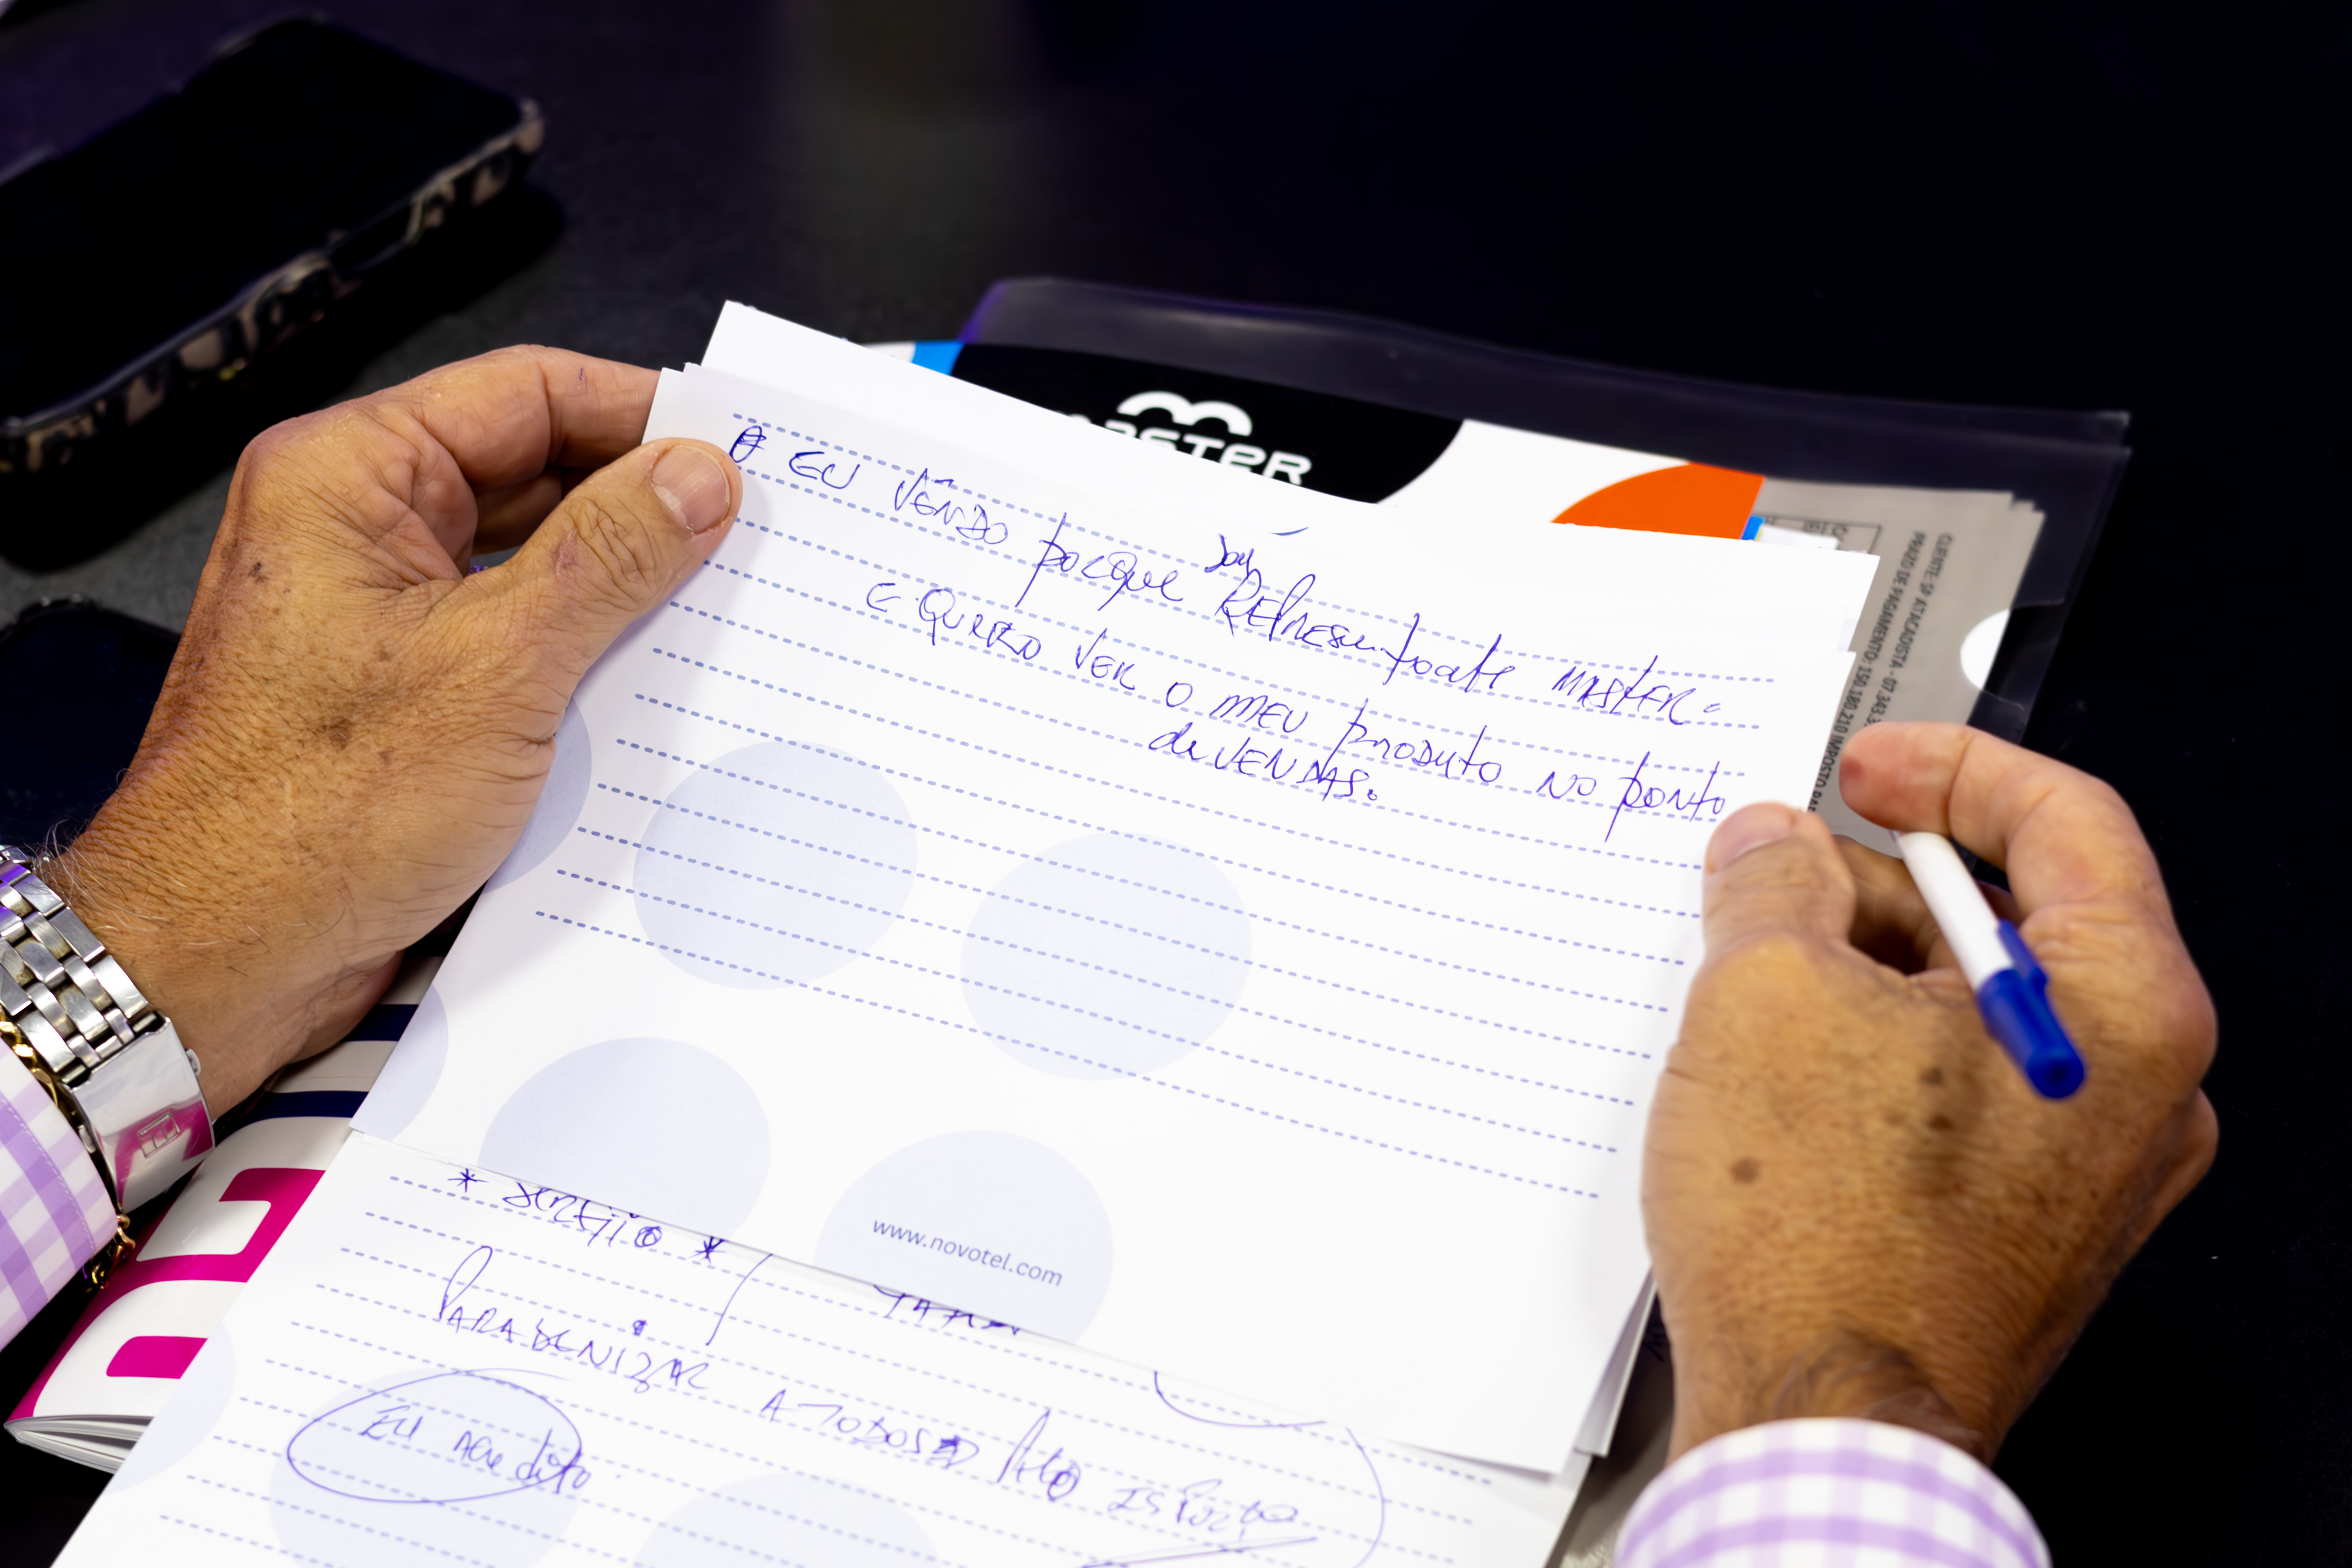 MASTER
CLIENTE: SP ATACADISTA - 07.343.3
PRAZO DE PAGAMENTO: 150.180.210 IMPOSTO
EU VENDO porque sou REPRESENTANTE MASTER
E QUERO VER O MEU PRODUTO NO PONTO
de VENDAS.
www.novotel.com
PARABENIZAR A TODOS PELO
EU ACREDITO